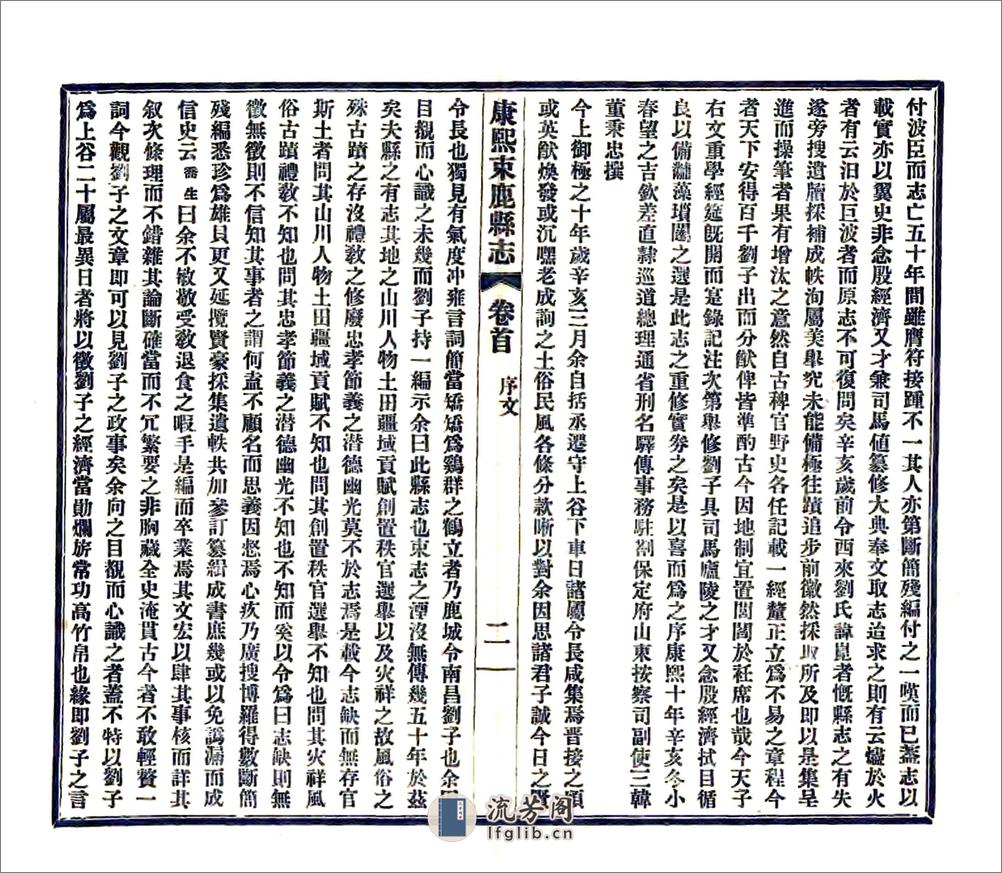 付波臣而志亡五十年間雖膺符接踵不一其人亦第斷簡殘編付之一嘆而已蓋志以
載實亦以翼史非念殷經濟又才兼司馬值纂修大典奉文取志追求之則有云燼於火
者有云汨於巨波者而原志不可復問矣辛亥歲前令西來劉氏諱崑者慨縣志之有失
遂旁搜遺牘採補成帙洵屬美舉究未能備極往蹟追步前徽然採取所及即以是集呈
進而操筆者果有增汰之意然自古稗官野史各任記載一經釐正立為不易之章程今
者天下安得百千劉子出而分猷俾皆準酌古今因地制宜置閭閻於袵席也哉今天子
右文重學經筵旣開而寔錄記注次第舉修劉子具司馬廬陵之才又念殷經濟拭目循
良以備黼藻瑣闥之選是此志之重修實劵之矣是以喜而為之序康熙十年辛亥冬小
春望之吉欽差直隸巡道總理通省刑名驛傳事務駐劄保定府山東按察司副使三韓
董秉忠撰
今上御極之十年歲辛亥三月余自括丞遷守上谷下車日諸屬令長咸集焉晋接之頃
或英猷煥發或沉嘿老成詢之土俗民風各條分款晰以對余因思諸君子誠今日之賢
康熙束鹿縣志 卷首 序文 二
令長也獨見有氣度冲雍言詞簡當矯矯為鷄群之鶴立者乃鹿城令南昌劉子也余
目覩而心識之未幾而劉子持一編示余曰此縣志也束志之湮沒無傳幾五十年於茲
矣夫縣之有志其地之山川人物土田疆域貢賦創置秩官選舉以及灾祥之故風俗之
殊古蹟之存沒禮敎之修廢忠孝節義之潛德幽光莫不於志焉是載今志缺而無存官
斯土者問其山川人物土田疆域貢賦不知也問其創置秩官選舉不知也問其灾祥風
俗古蹟禮敎不知也問其忠孝節義之潛德幽光不知也不知而奚以令為曰志缺則無
徵無徵則不信知其事者之謂何盍不顧名而思義因惄焉心疚乃廣搜博羅得數斷簡
殘編悉珍為雄貝更又延攬賢豪採集遺軼共加叅訂纂緝成書庶幾或以免譌漏而成
信史云喬生曰余不敏敬受敎退食之暇手是編而卒業焉其文宏以肆其事核而詳其
叙次條理而不錯雜其論斷確當而不冗繁要之非胸藏全史淹貫古今者不敢輕贅一
詞今觀劉子之文章即可以見劉子之政事矣余向之目覩而心識之者蓋不特以劉子
為上谷二十屬最異日者將以徵劉子之經濟當勛爛旂常功高竹帛也緣即劉子之言
流芳阁
lfglib.cn